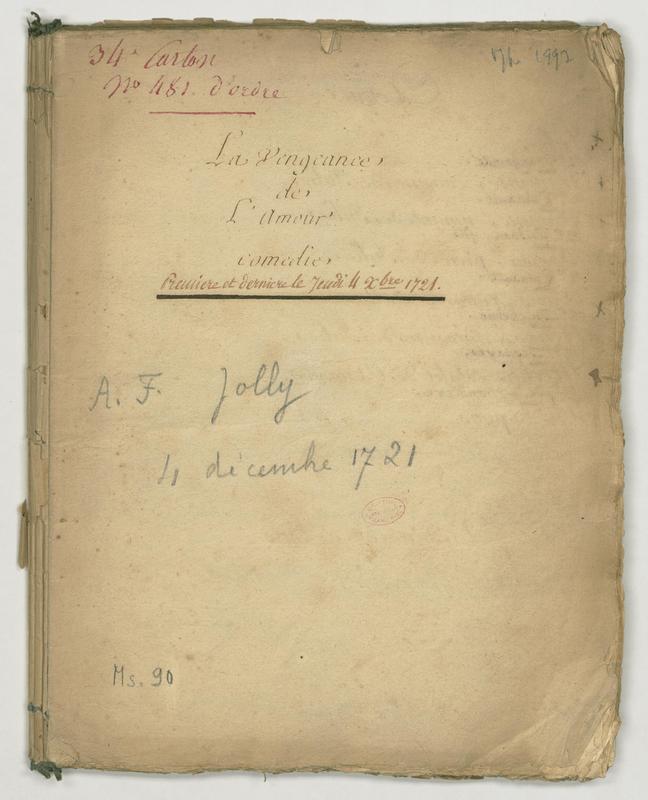 34e Carton
No 481. d'ordre
La Vengeance
de
L'Amour
comedie
Premiere et derniere le Jeudi 4 Xbre 1721.
A. F. Jolly
4 décembre 1721
Ms. 90